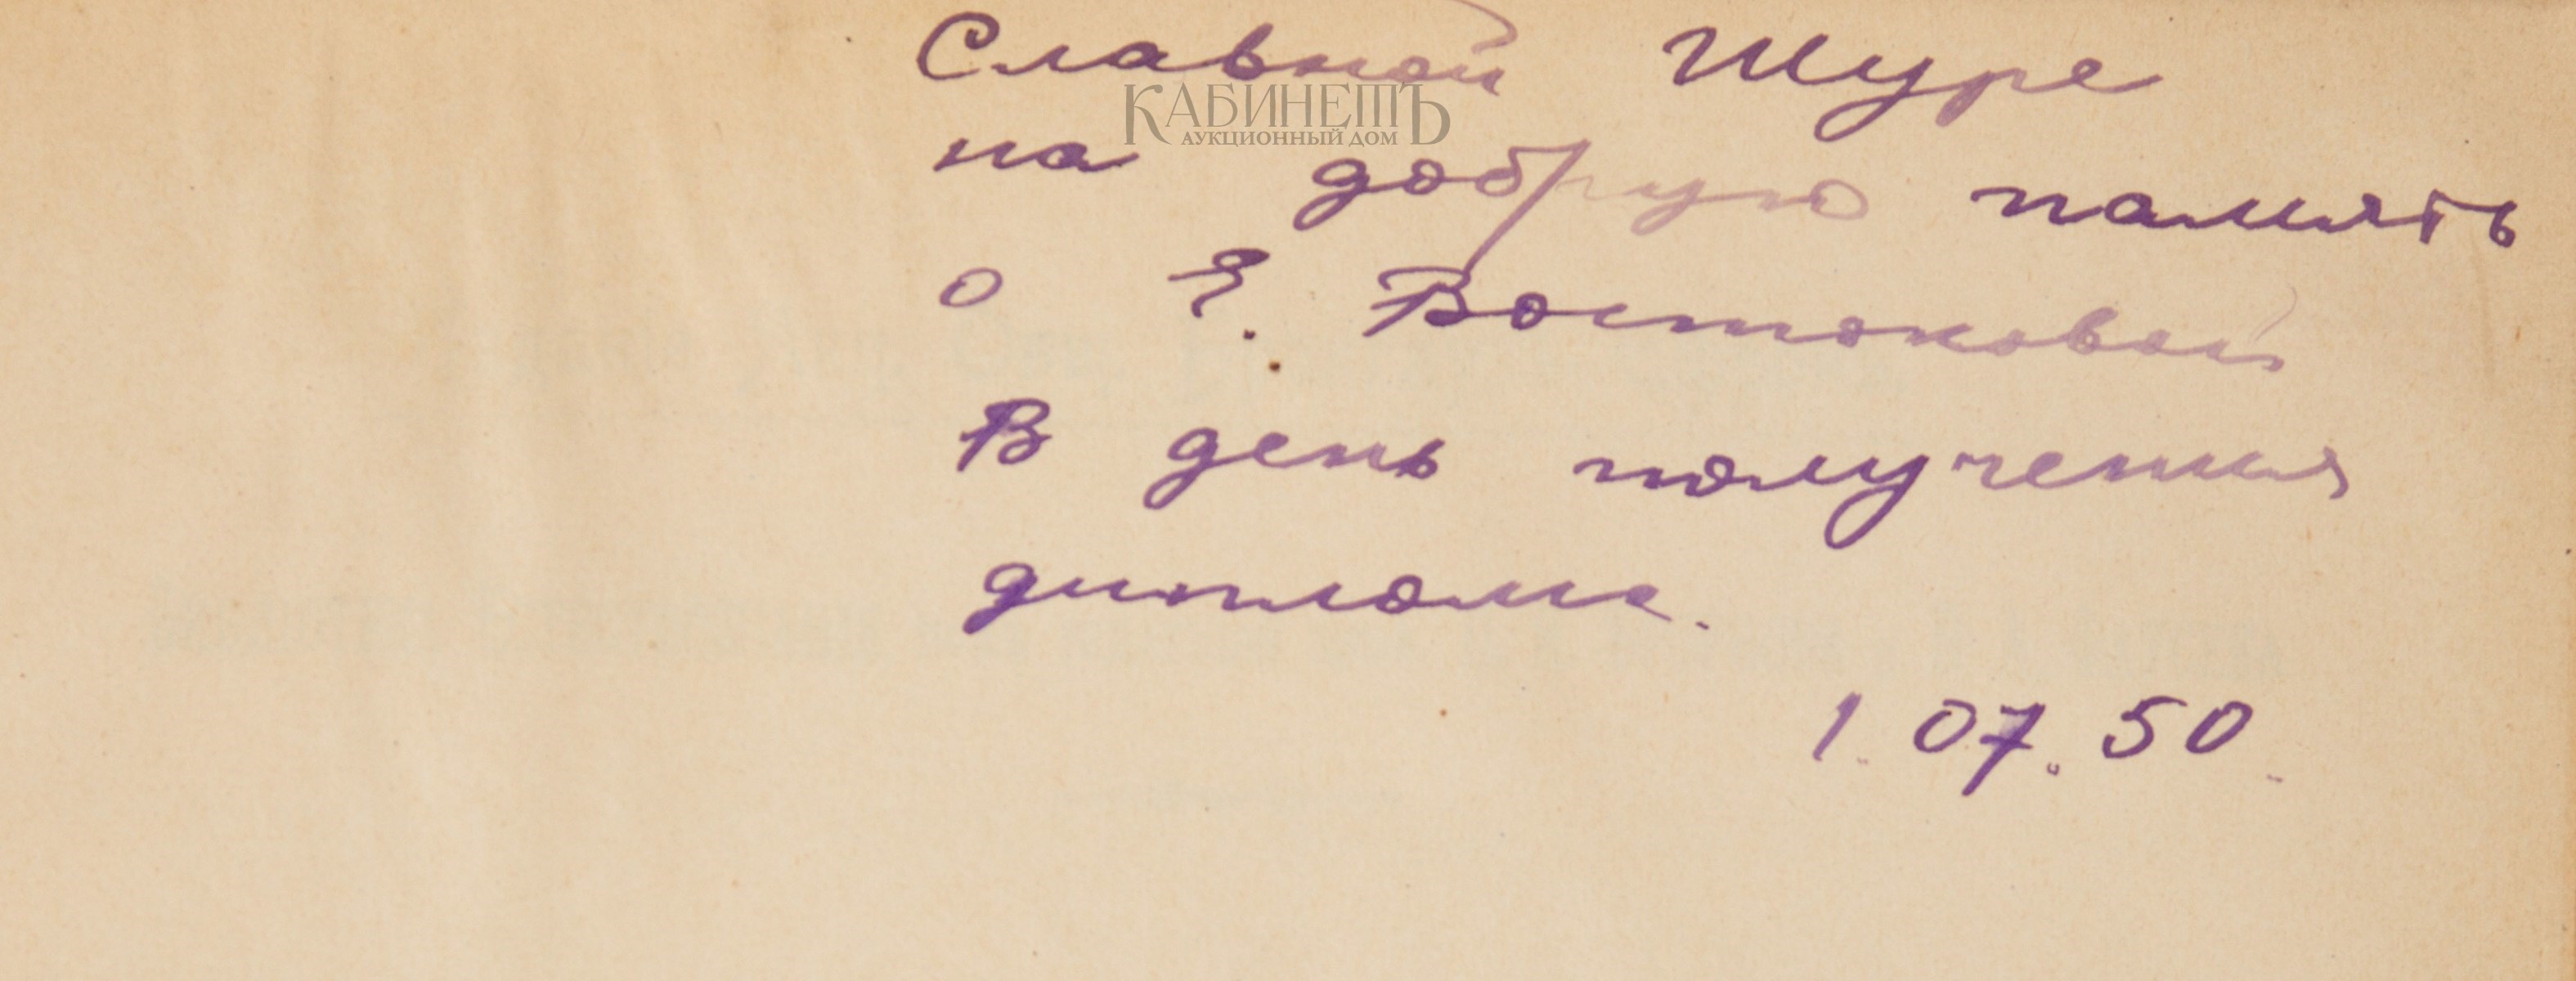 Славной Шуре
КАБИНЕТЪ
АУКЦИОННЫЙ ДОМ
на добрую память
о Е. Востоковой
В день получения
диплома.
1.07.50.